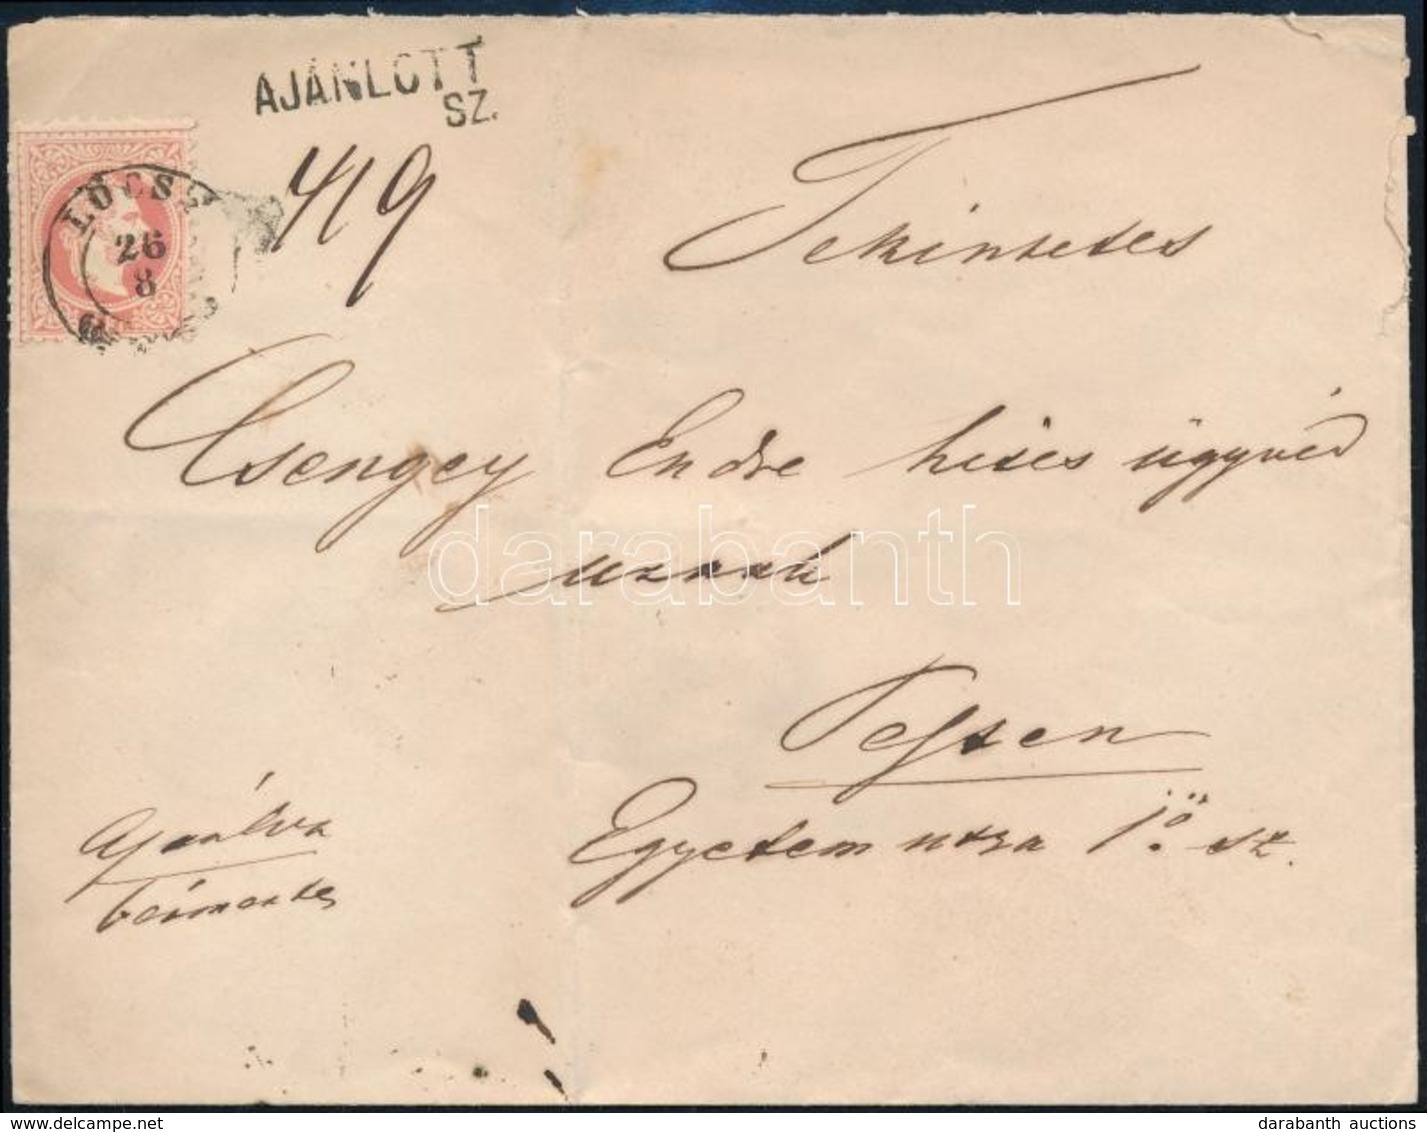 AJÁNLOTT
SZ.
419
LŐCSE
26
8
Tekintetes
Csengey Endre hites ügyvéd
urnak
Pesten
Egyetem utza 1ö. sz.
Ajánlva
bérmentes
darabanth
darabanth auctions